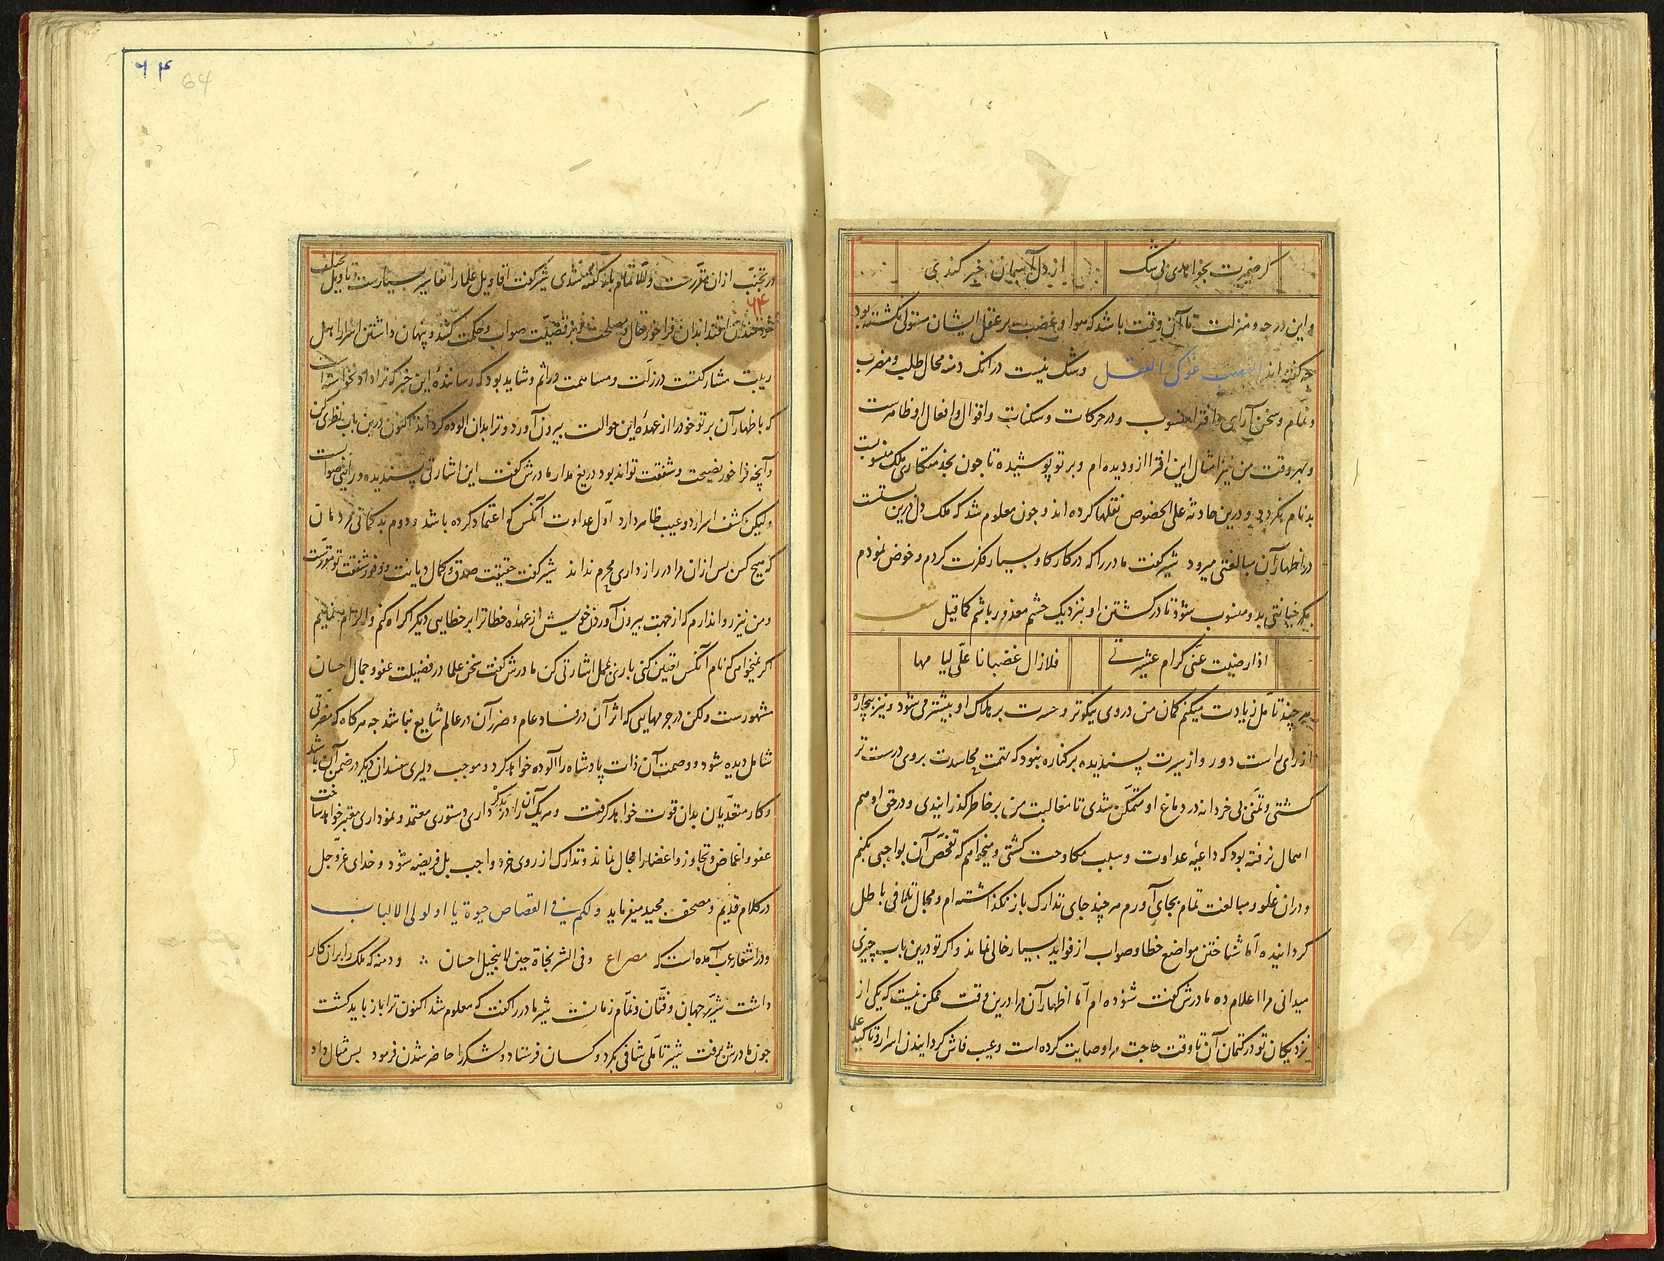 گر ضمیرت بخواهدی بی شک
از دل آسمان خبر کندی
و این درجه و منزلت تا آن وقت باشد که هوا و غضب بر عقل ایشان مستولی نگشته بود
چه گفته اند الغضب غول العقل و شک نیست در آنک دمنه محال طلب و مضرب
و نمام و سخن آرای و افترا منسوب و در حرکات و سکنات و اقوال و افعال او ظاهرست
و بهر وقت من نیز امثال این افترا ازو دیده ام و بر تو پوشیده تا چون بخدمتکاری ملک منسوبست
بدنام نگردد و درین حادثه علی الخصوص نقلها کرده اند و چون معلوم شد که ملک دل درین بستست
در اظهار آن مبالغتی میرود شیر گفت مادر را که در کار گاو بسیار فکرت کردم و خوض نمودم
خیانتی بدو منسوب شود تا در کشتن او بنزدیک خشم معذور باشم کما قیل شعر
اذا رضیت عنی کرام عشیرتی
فلا زال غضبانا علی لیا مها
هر چند تامل زیادت میکنم گمان من در وی نیکوتر و حسرت بر هلاک او بیشتر می شود و نیز بیچاره
از رای راست دور و از سیرت پسندیده بر کناره نبود که تهمت محاسدت بروی درست تر
گشتی و تمنی بی خردانه در دماغ او متمکن شدی تا مغالبت من بر خاطر گذرانیدی و در حق او هم
اهمال نرفته بود که داعیه عداوت و سبب مکاوحت گشتی و میخواهم که تفحص آن بواجبی بکنم
و دران غلو و مبالغت تمام بجای آورم هر چند جای تدارک باز نگذاشته ام و مجال تلافی باطل
گردانیده اما شناختن مواضع خطا و صواب از فواید بسیار خالی نماند و اگر تو درین باب چیزی
میدانی مرا اعلام ده مادرش گفت شنوده ام اما اظهار آن مرا درین وقت ممکن نیست که یکی از
نزدیکان تو در کتمان آن تا وقت حاجت مرا وصایت کرده است و عیب فاش گردانیدن اسرار و تاکید علما
۶۴
64
در تجنب از آن مقررست و الا تمام باز گفته شدی شیر گفت اقاویل علما را تفاسیر بسیارست و تاویل مختلف
۶۴
و پنهان داشتن اسرار اهل
ریبت مشارکتست در زلت و مساهمت در اثم و شاید بود که رساننده این خبر که ترا داد خواست
که باظهار آن بر تو خود را از عهده این حوالت بیرون آورد و ترا بدان الوده گرداند اکنون درین باب نظری کن
و آنچه فراخور نصیحت و شفقت تواند بود دریغ مدار مادرش گفت این اشارتی پسندیده و رایی صوابست
و لیکن کشف اسرار دو عیب ظاهر دارد اول عداوت آنکس که اعتماد کرده باشد و دوم بدگمانی مردمان
که هیچ کس پس ازان مرا در راز داری محرم نداند شیر گفت حقیقت صدق و کمال دیانت و وفور شفقت تو مقررست
و من نیز روا ندارم که از جهت بیرون آوردن خویش از عهده خطا ترا بر خطایی دیگر اکراه کنم
اگر نمیخواهی که نام آنکس تعیین کنی باری مجمل اشارتی کن مادرش گفت سخن علما در فضیلت عفو و جمال احسان
مشهورست ولکن در جرمهایی که اثر آن در فساد عام و ضرر آن در عالم شایع نباشد چه هرگاه که مضرتی
شامل دیده شود و وصمت آن ذات پادشاه را الوده خواهد کرد و موجب دلیری مفسدان دیگر در ضمن آن باشد
و کار متعدیان بدان قوت خواهد گرفت و هر یک آن را در بدکرداری دستوری معتمد و نموداری معتبر خواهد شناخت
عفو و اغماض و تجاوز و اغضا را مجال نماند و تدارک از روی خرد واجب بل فریضه شود و خدای عز و جل
در کلام قدیم و مصحف مجید میفرماید و لکم فی القصاص حیوة یا اولو لی الالباب
و در اشعار عرب آمده است که مصراع و فی الشر نجاة حین لا ینجیک احسان و دمنه که ملک را بران کار
داشت شریر جهان و فتان و نمام زمانست شیر مادر را گفت که معلوم شد اکنون ترا باز باید گشت
چون مادرش برفت شیر تاملی شافی بکرد و کسان فرستاد و لشکر را حاضر شدن فرمود پس مثال داد